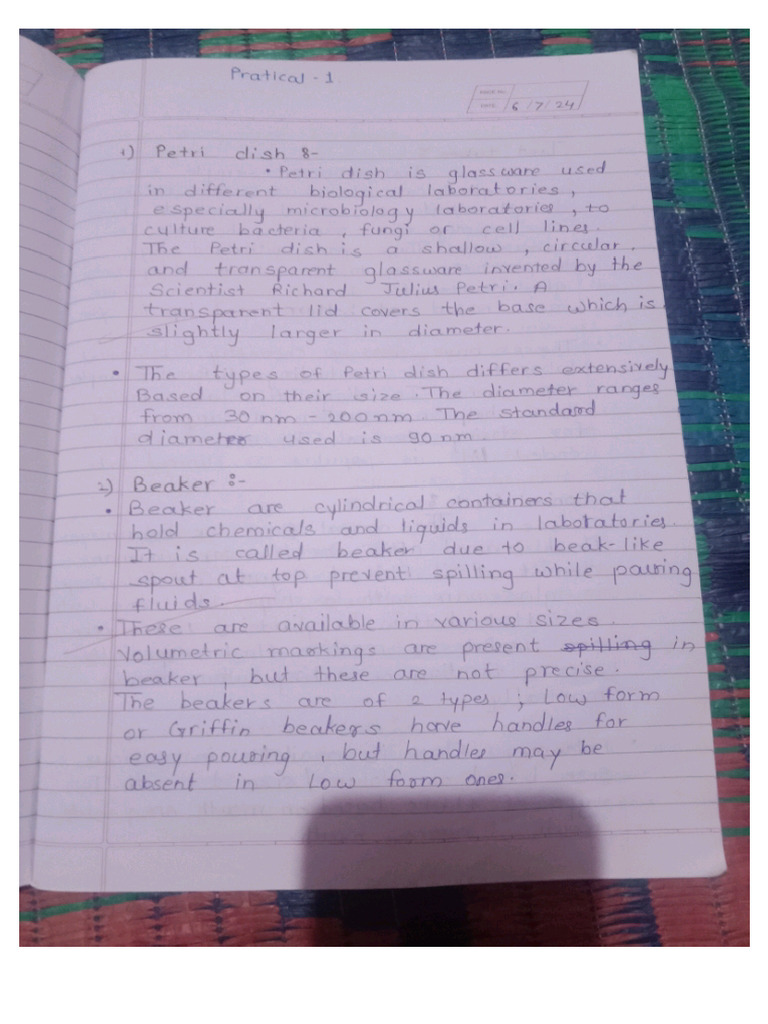 Pratical - 1
PAGE No.
DATE 6/7/24
1) Petri dish :-
• Petri dish is glassware used
in different biological laboratories,
especially microbiology laboratories, to
culture bacteria, fungi or cell lines.
The Petri dish is a shallow, circular,
and transparent glassware invented by the
Scientist Richard Julius Petri. A
transparent lid covers the base which is
slightly larger in diameter.
• The types of Petri dish differs extensively
Based on their size. The diameter ranges
from 30 nm - 200 nm. The standard
diameter used is 90 nm.
2) Beaker :-
• Beaker are cylindrical containers that
hold chemicals and liquids in laboratories.
It is called beaker due to beak-like
spout at top prevent spilling while pouring
fluids.
• These are available in various sizes.
Volumetric markings are present spilling in
beaker, but these are not precise.
The beakers are of 2 types; Low form
or Griffin beakers have handles for
easy pouring, but handles may be
absent in Low form ones.